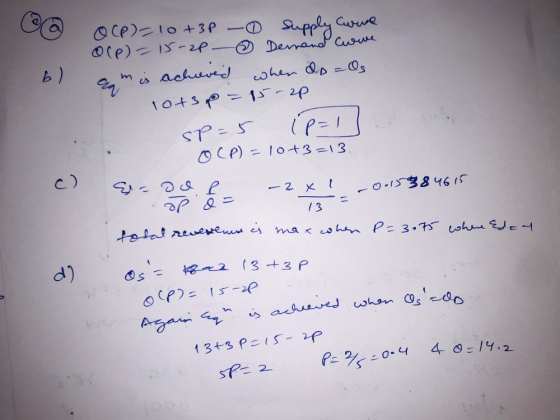 ② ⓐ Q(P) = 10 + 3P — ① Supply Curve
Q(P) = 15 - 2P — ② Demand Curve
b) Eqᵐ is achieved when QD = QS
10 + 3P = 15 - 2P
5P = 5 P = 1
Q(P) = 10 + 3 = 13
c) Ed = ∂Q/∂P · P/Q = -2 × 1/13 = -0.15384615
total revenue is max when P = 3.75 when Ed = -1
d) QS' = 13 + 3P
Q(P) = 15 - 2P
Again Eqᵐ is achieved when QS' = QD
13 + 3P = 15 - 2P
5P = 2 P = 2/5 = 0.4 & Q = 14.2